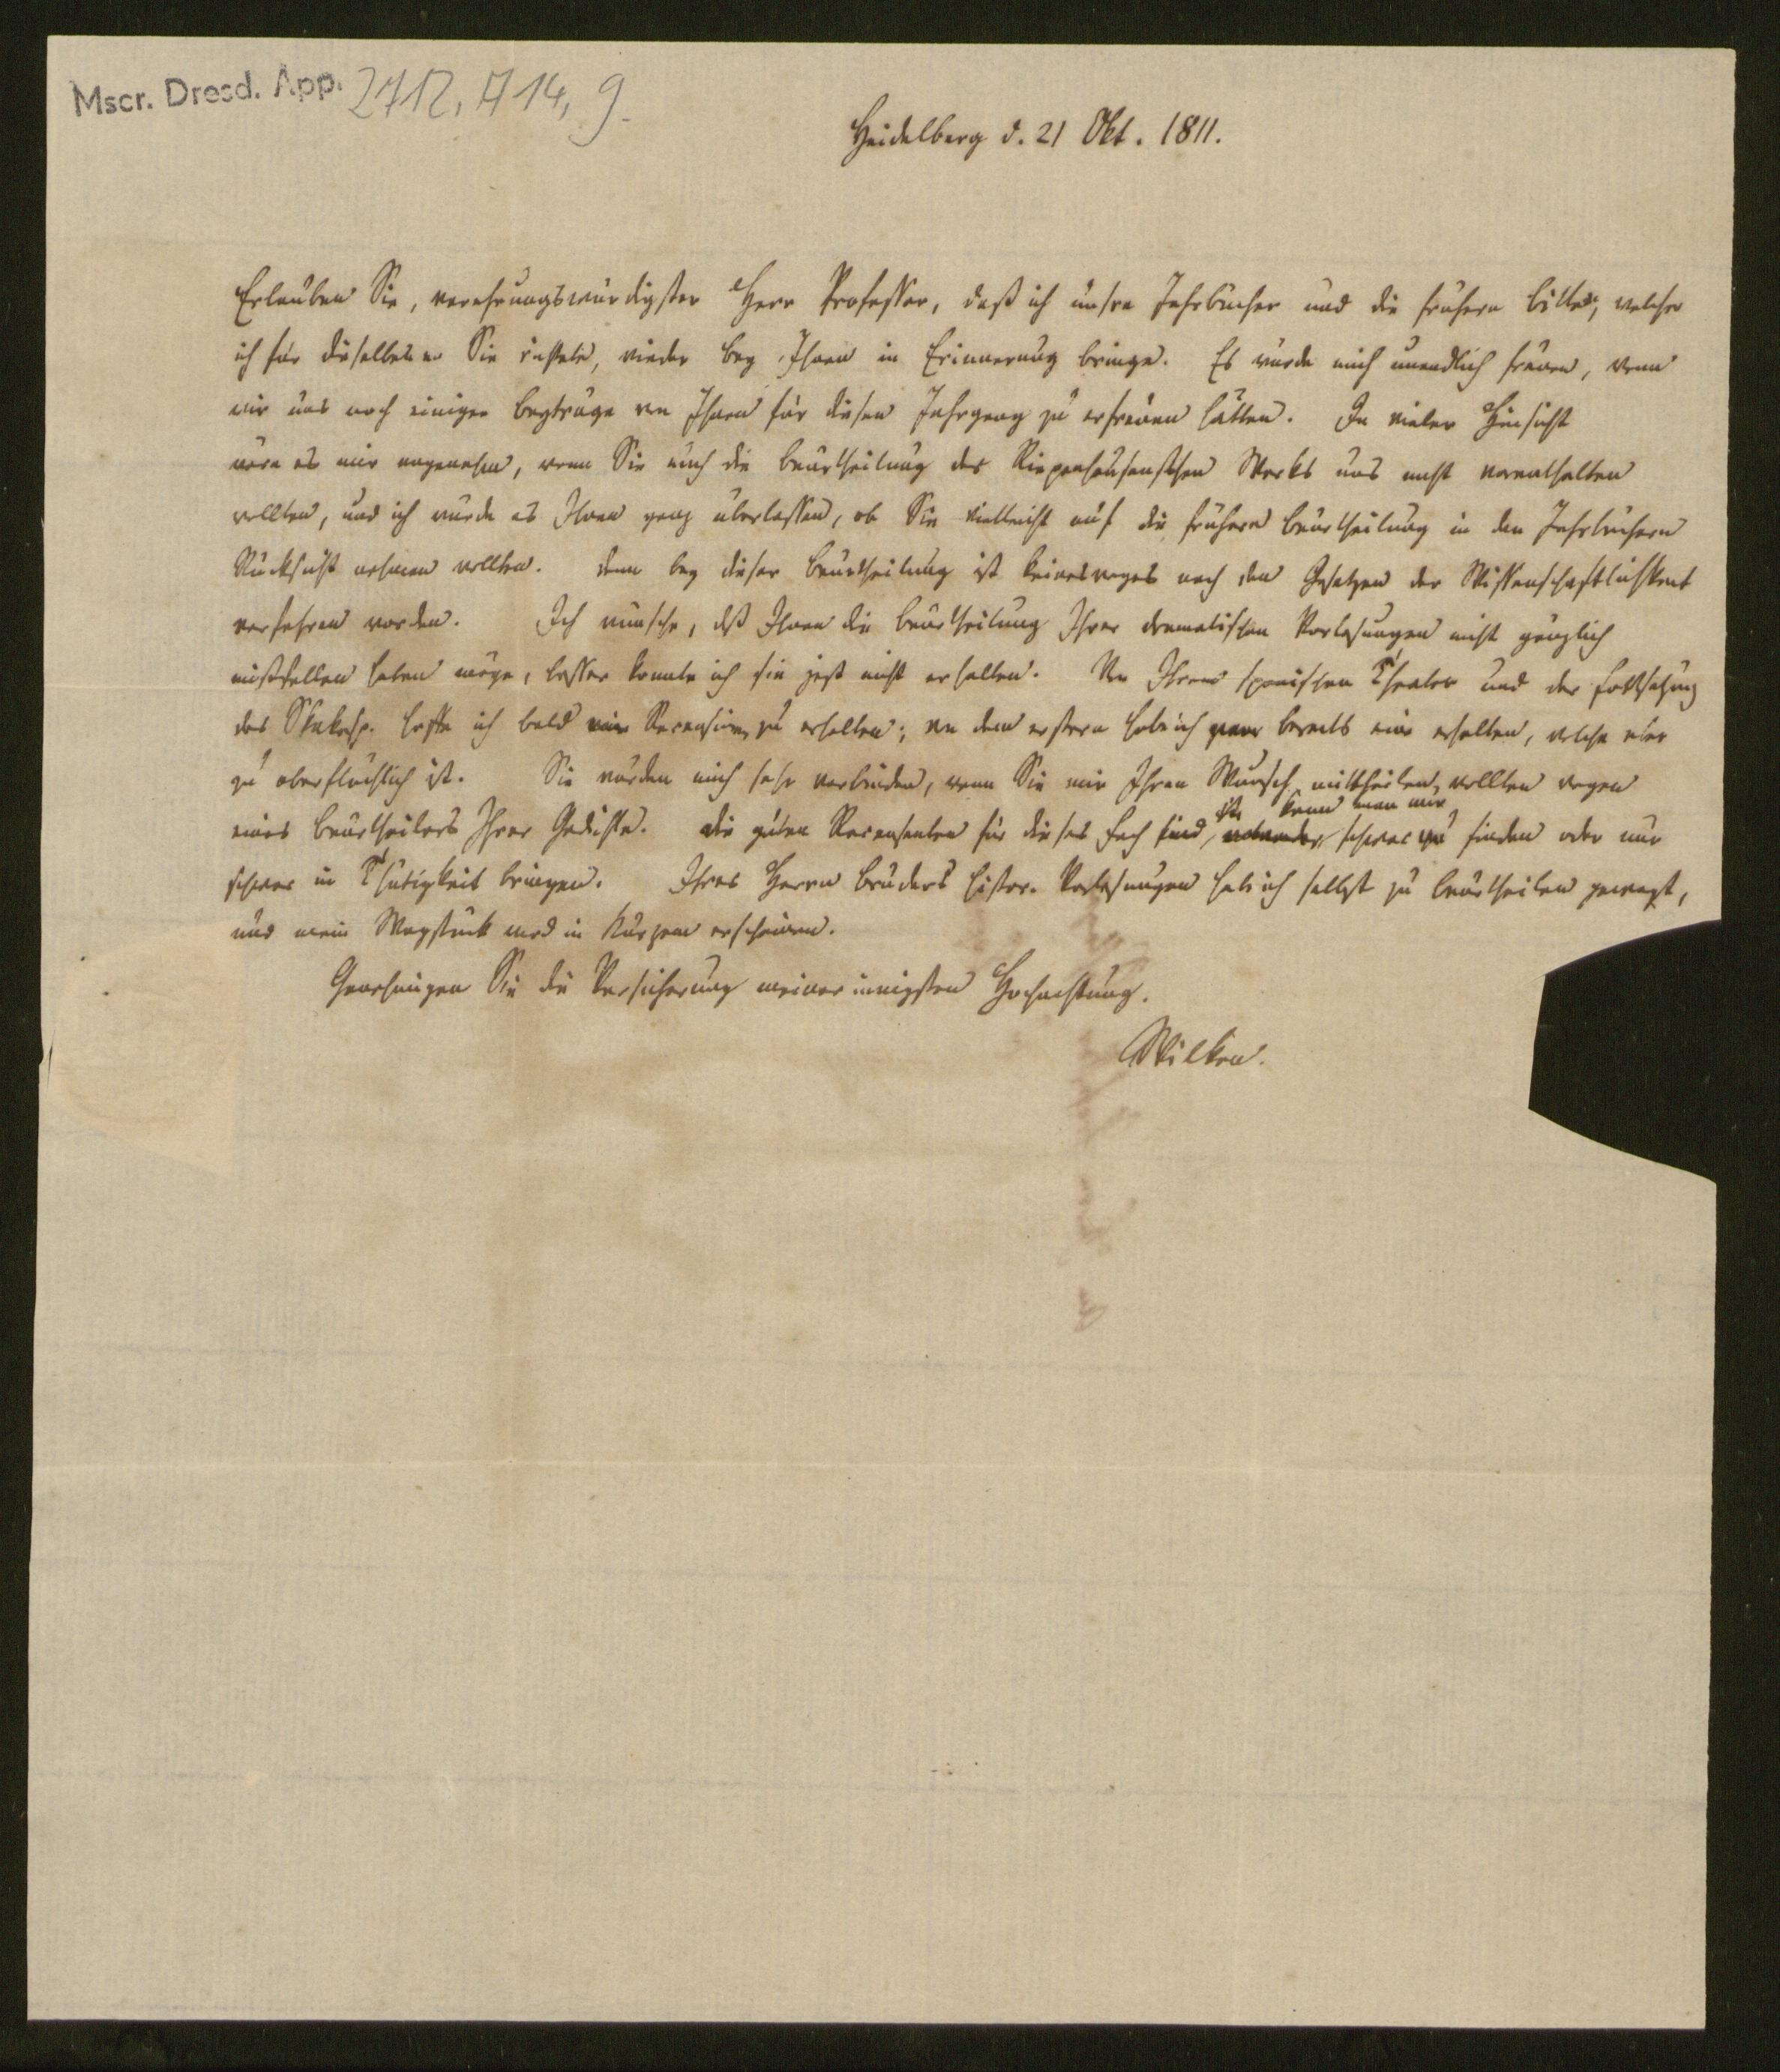 Mscr. Dresd. App. 2712, A 14, 9.
Heidelberg d. 21 Okt. 1811.
Erlauben Sie, verehrungswürdigster Herr Professor, daß ich unsre Jahrbücher und die frühern Bitten, welche
ich für dieselben an Sie richtete, wieder bey Ihnen in Erinnerung bringe. Es würde mich unendlich freuen, wenn
wir uns noch einiger Beyträge von Ihnen für diesen Jahrgang zu erfreuen hätten. In vieler Hinsicht
wäre es mir angenehm, wenn Sie auch die Beurtheilung des Riepenhausenschen Werks uns nicht vorenthalten
wollten, und ich würde es Ihnen ganz überlassen, ob Sie vielleicht auf die frühere Beurtheilung in den Jahrbüchern
Rücksicht nehmen wollten. Denn bey dieser Beurtheilung ist keinesweges nach den Gesetzen der Wissenschaftlichkeit
verfahren worden. Ich wünsche, daß Ihnen die Beurtheilung Ihrer dramatischen Vorlesungen nicht gänzlich
mißfallen haben möge, besser konnte ich sie jetzt nicht erhalten. Von Ihrem spanischen Theater und der Fortsetzung
des Shakesp. hoffe ich bald eine Recension zu erhalten; von dem erstern habe ich zwar bereits eine erhalten, welche aber
zu oberflächlich ist. Sie würden mich sehr verbinden, wenn Sie mir Ihren Wunsch mittheilen wollten wegen
eines Beurtheilers Ihrer Gedichte. Die guten Recensenten für dieses Fach sind, kann man nur schwer finden oder nur
schwer in Thätigkeit bringen. Ihres Herrn Bruders histor. Vorlesungen hab ich selbst zu beurtheilen gewagt,
und mein Wagstück wird in Kurzem erscheinen.
Genehmigen Sie die Versicherung meiner innigsten Hochachtung.
Wilken.